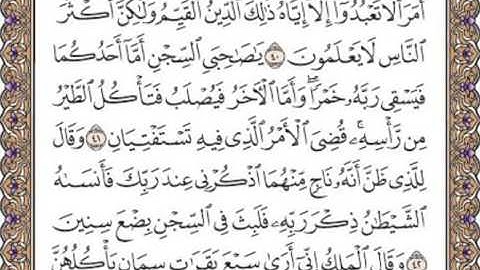 أَمَرَ أَلَّا تَعْبُدُوٓا۟ إِلَّآ إِيَّاهُ ذَٰلِكَ ٱلدِّينُ ٱلْقَيِّمُ وَلَٰكِنَّ أَكْثَرَ
ٱلنَّاسِ لَا يَعْلَمُونَ ٤٠ يَٰصَٰحِبَىِ ٱلسِّجْنِ أَمَّآ أَحَدُكُمَا
فَيَسْقِى رَبَّهُۥ خَمْرًا ۖ وَأَمَّا ٱلْءَاخَرُ فَيُصْلَبُ فَتَأْكُلُ ٱلطَّيْرُ
مِن رَّأْسِهِۦ ۚ قُضِىَ ٱلْأَمْرُ ٱلَّذِى فِيهِ تَسْتَفْتِيَانِ ٤١ وَقَالَ
لِلَّذِى ظَنَّ أَنَّهُۥ نَاجٍ مِّنْهُمَا ٱذْكُرْنِى عِندَ رَبِّكَ فَأَنسَىٰهُ
ٱلشَّيْطَٰنُ ذِكْرَ رَبِّهِۦ فَلَبِثَ فِى ٱلسِّجْنِ بِضْعَ سِنِينَ
٤٢ وَقَالَ ٱلْمَلِكُ إِنِّىٓ أَرَىٰ سَبْعَ بَقَرَٰتٍ سِمَانٍ يَأْكُلُهُنَّ